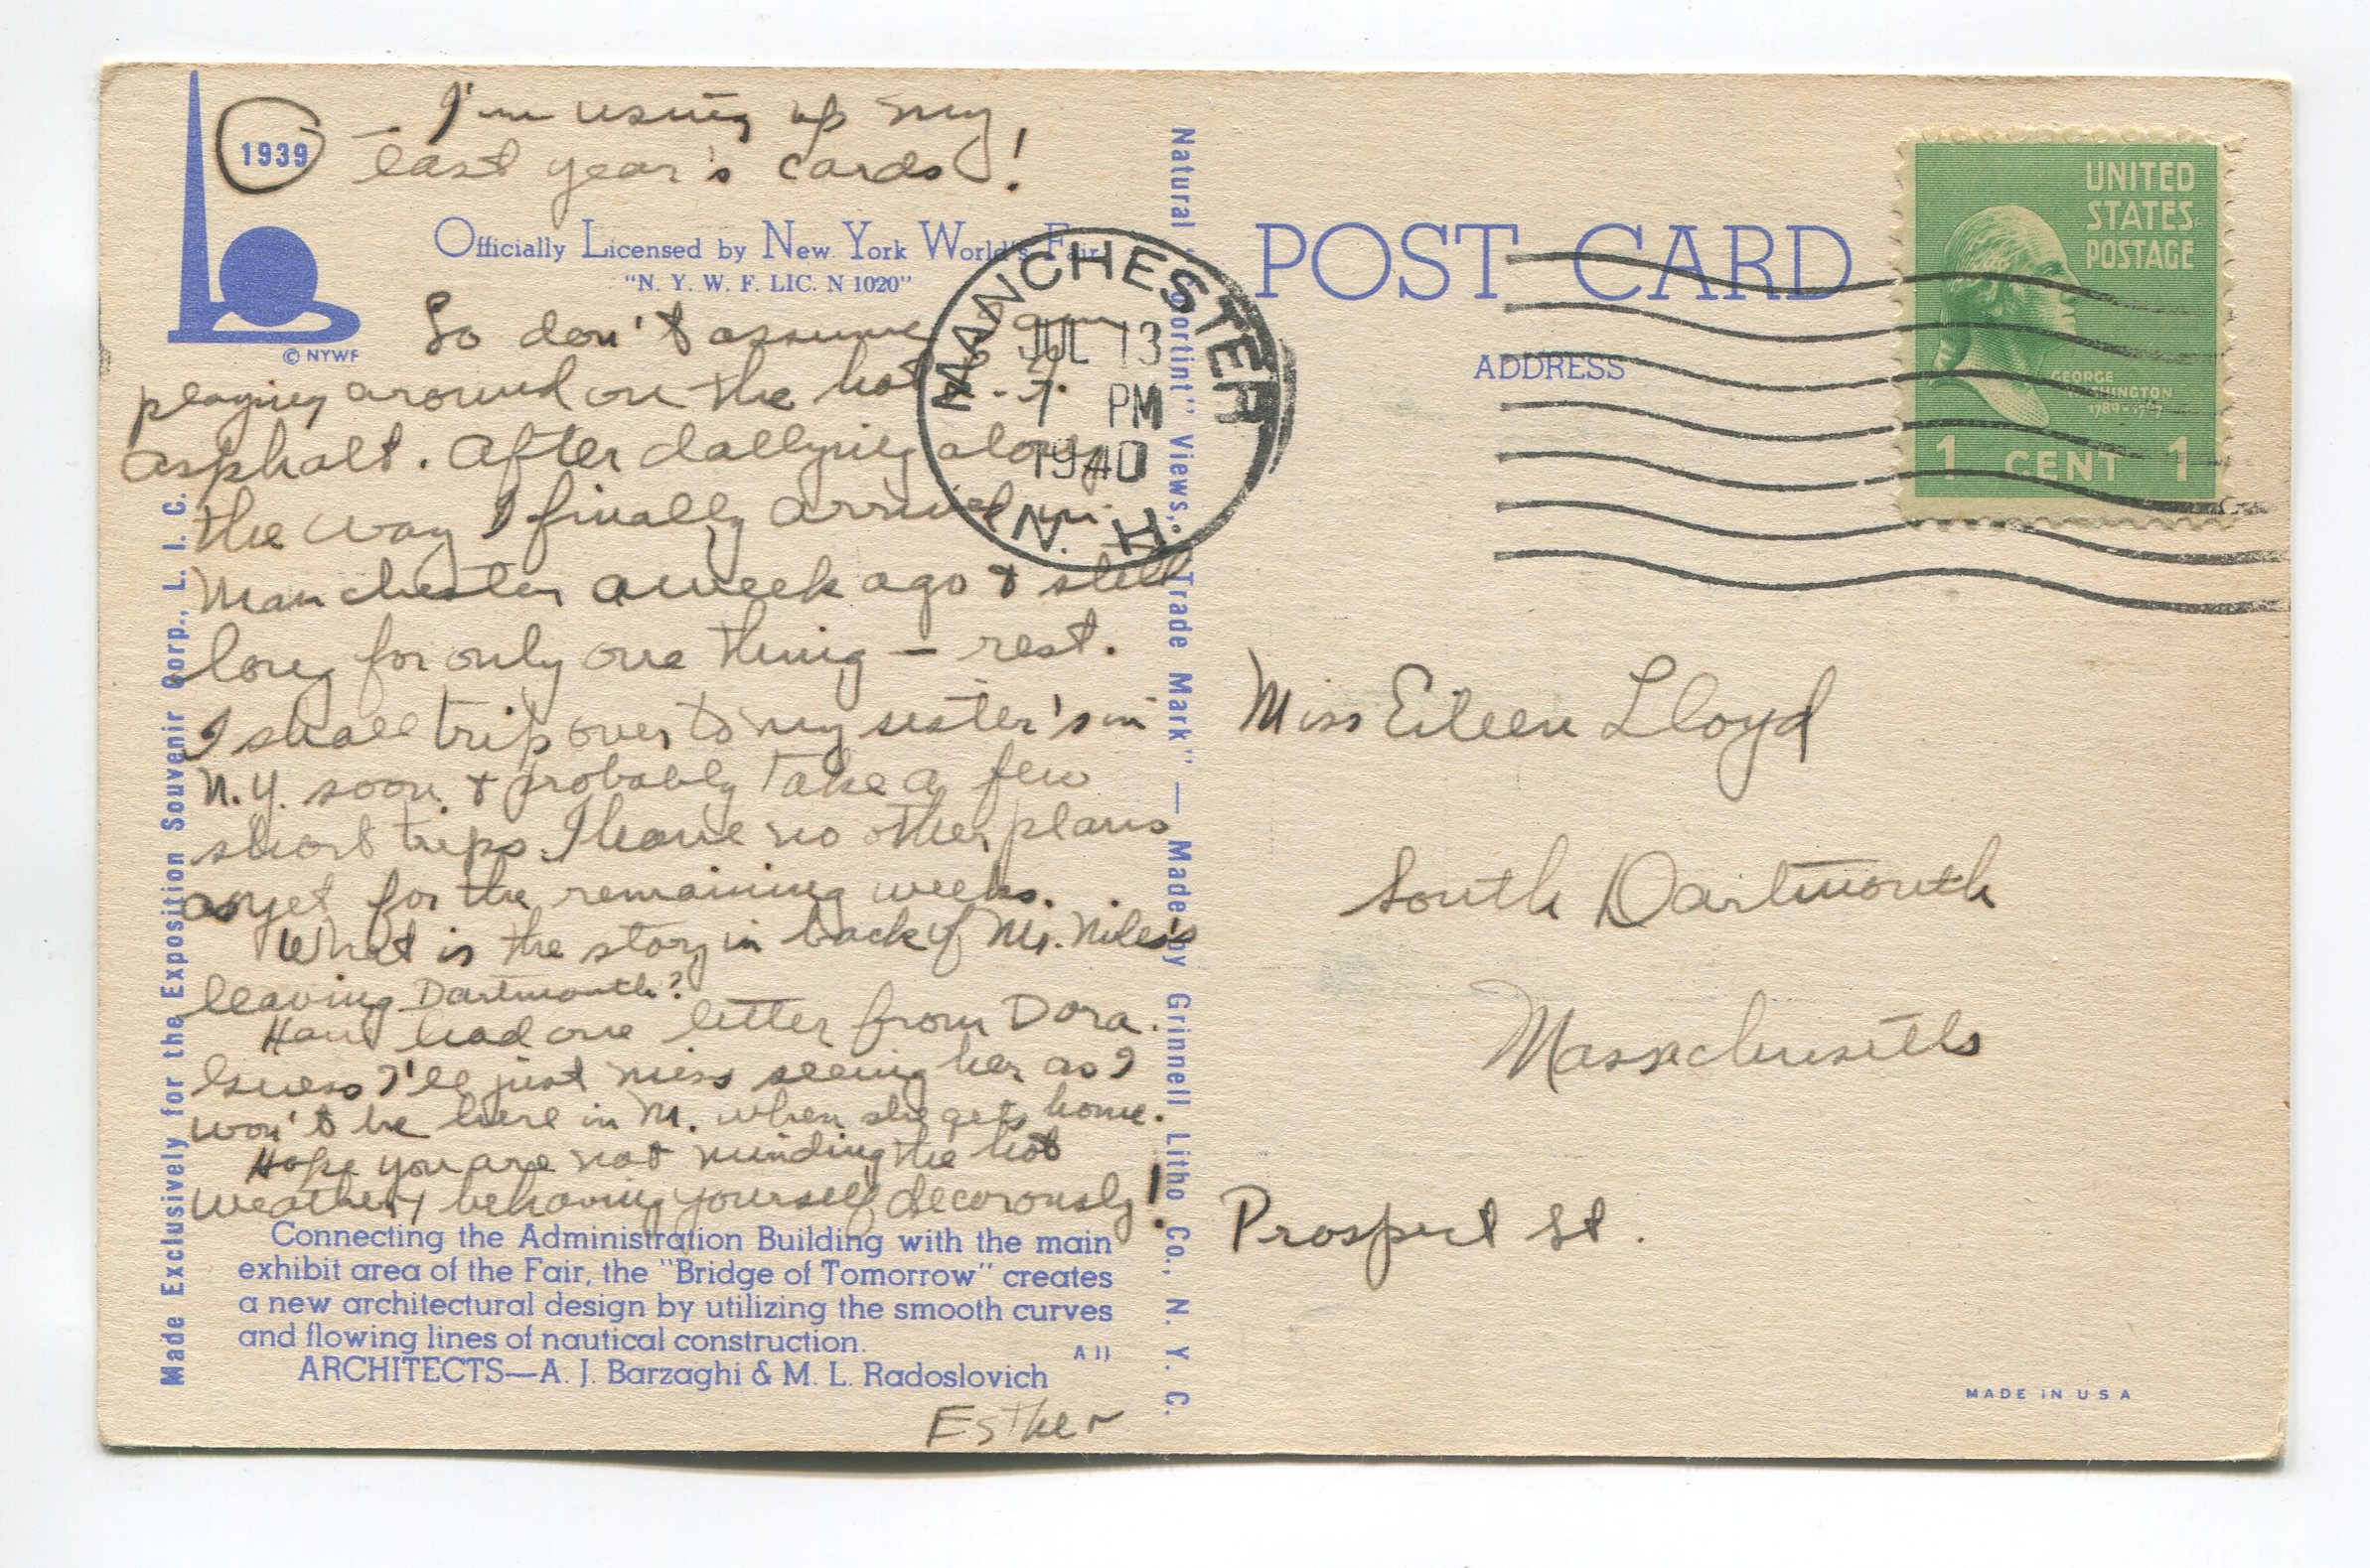 1939 — I'm using up my
last year's cards!
Officially Licensed by New York World's Fair
"N. Y. W. F. LIC. N 1020"
© NYWF
So don't assume I am
playing around on the hot N.Y.
asphalt. After dallying along
the way I finally arrived in
Manchester a week ago & still
long for only one thing — rest.
I shall trip over to my sister's in
N.Y. soon & probably take a few
short trips. I have no other plans
as yet for the remaining weeks.
What is the story in back of Mr. Niles's
leaving Dartmouth?
Have had one letter from Dora.
Guess I'll just miss seeing her as I
won't be here in M. when she gets home.
Hope you are not minding the hot
weather & behaving yourself decorously!
Connecting the Administration Building with the main
exhibit area of the Fair, the "Bridge of Tomorrow" creates
a new architectural design by utilizing the smooth curves
and flowing lines of nautical construction.
A 11
ARCHITECTS—A. J. Barzaghi & M. L. Radoslovich
Esther
Made Exclusively for the Exposition Souvenir Corp., L. I. C.
Natural "Colortint" Views, Trade Mark" — Made by Grinnell Litho Co., N. Y. C.
MANCHESTER
JUL 13
7 PM
1940
N. H.
POST CARD
ADDRESS
UNITED
STATES
POSTAGE
GEORGE
WASHINGTON
1789-1797
1 CENT 1
Miss Eileen Lloyd
South Dartmouth
Massachusetts
Prospect St.
MADE IN U S A